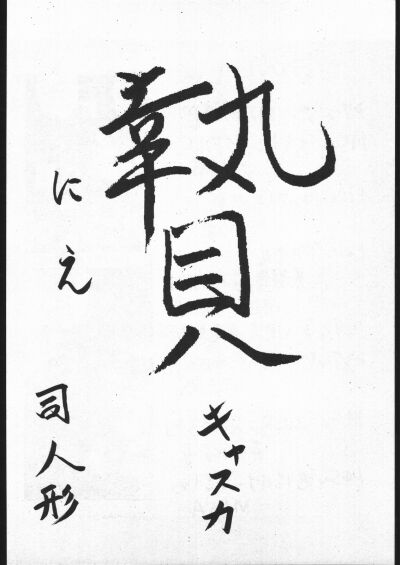 贄
にえ
キャスカ
司人形